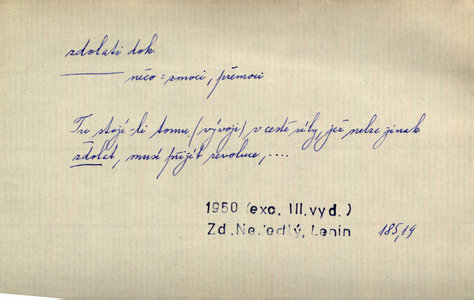 zdolati dok.
něco = zmoci, přemoci
Tu stojí-li tomu (vývoji) v cestě síly, jež nelze jinak
zdolat, musí přijít revoluce, ....
1950 (exc. III. vyd.)
Zd. Nejedlý, Lenin 185,19